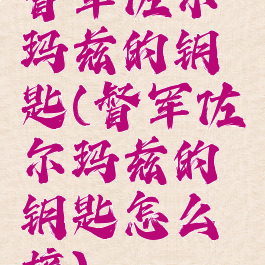 督军佐尔
玛兹的钥
匙(督军佐
尔玛兹的
钥匙怎么
搞)